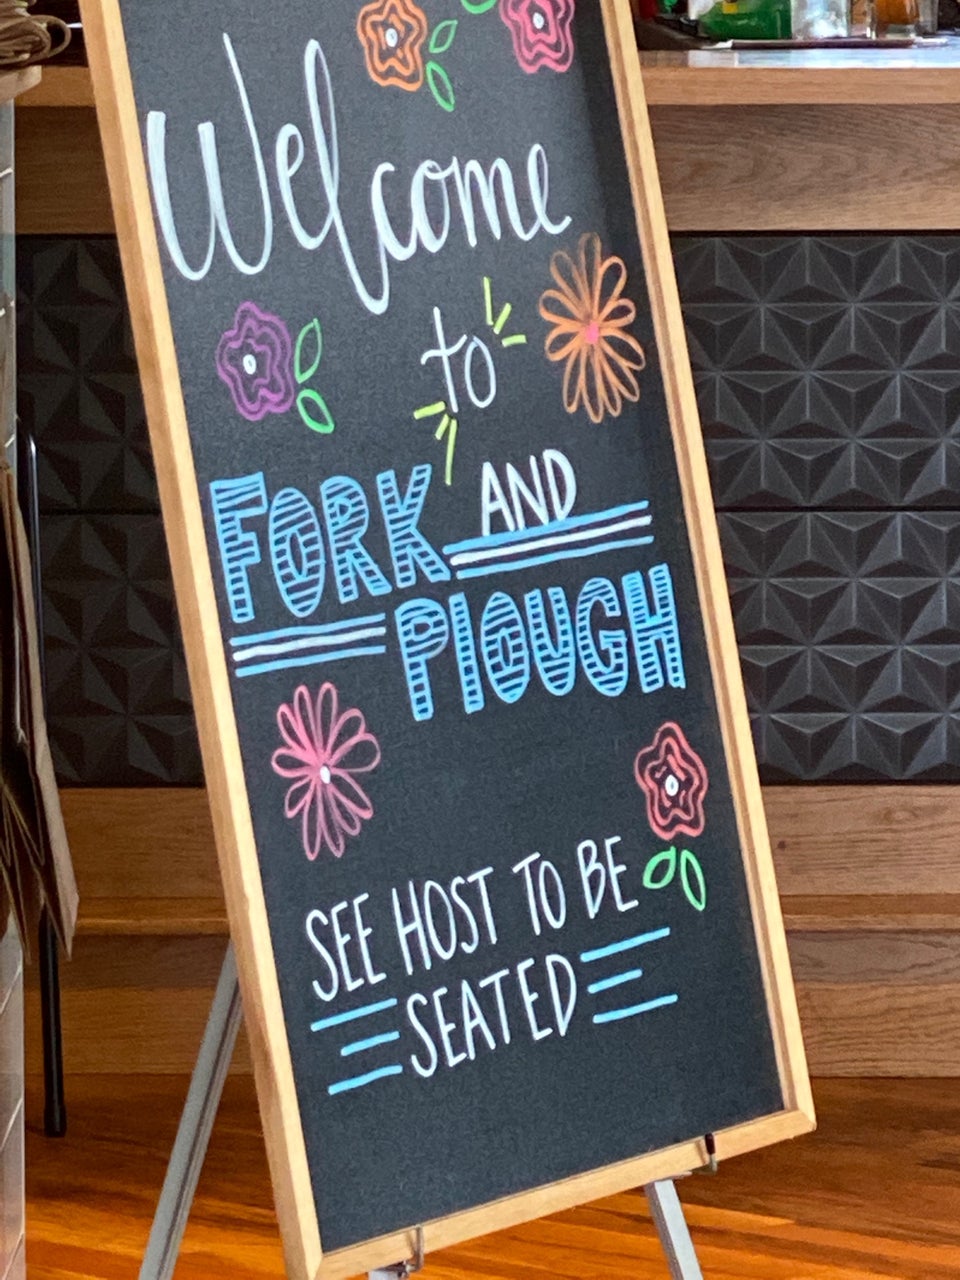 Welcome
to
FORK AND
PlOUGH
SEE HOST TO BE
SEATED